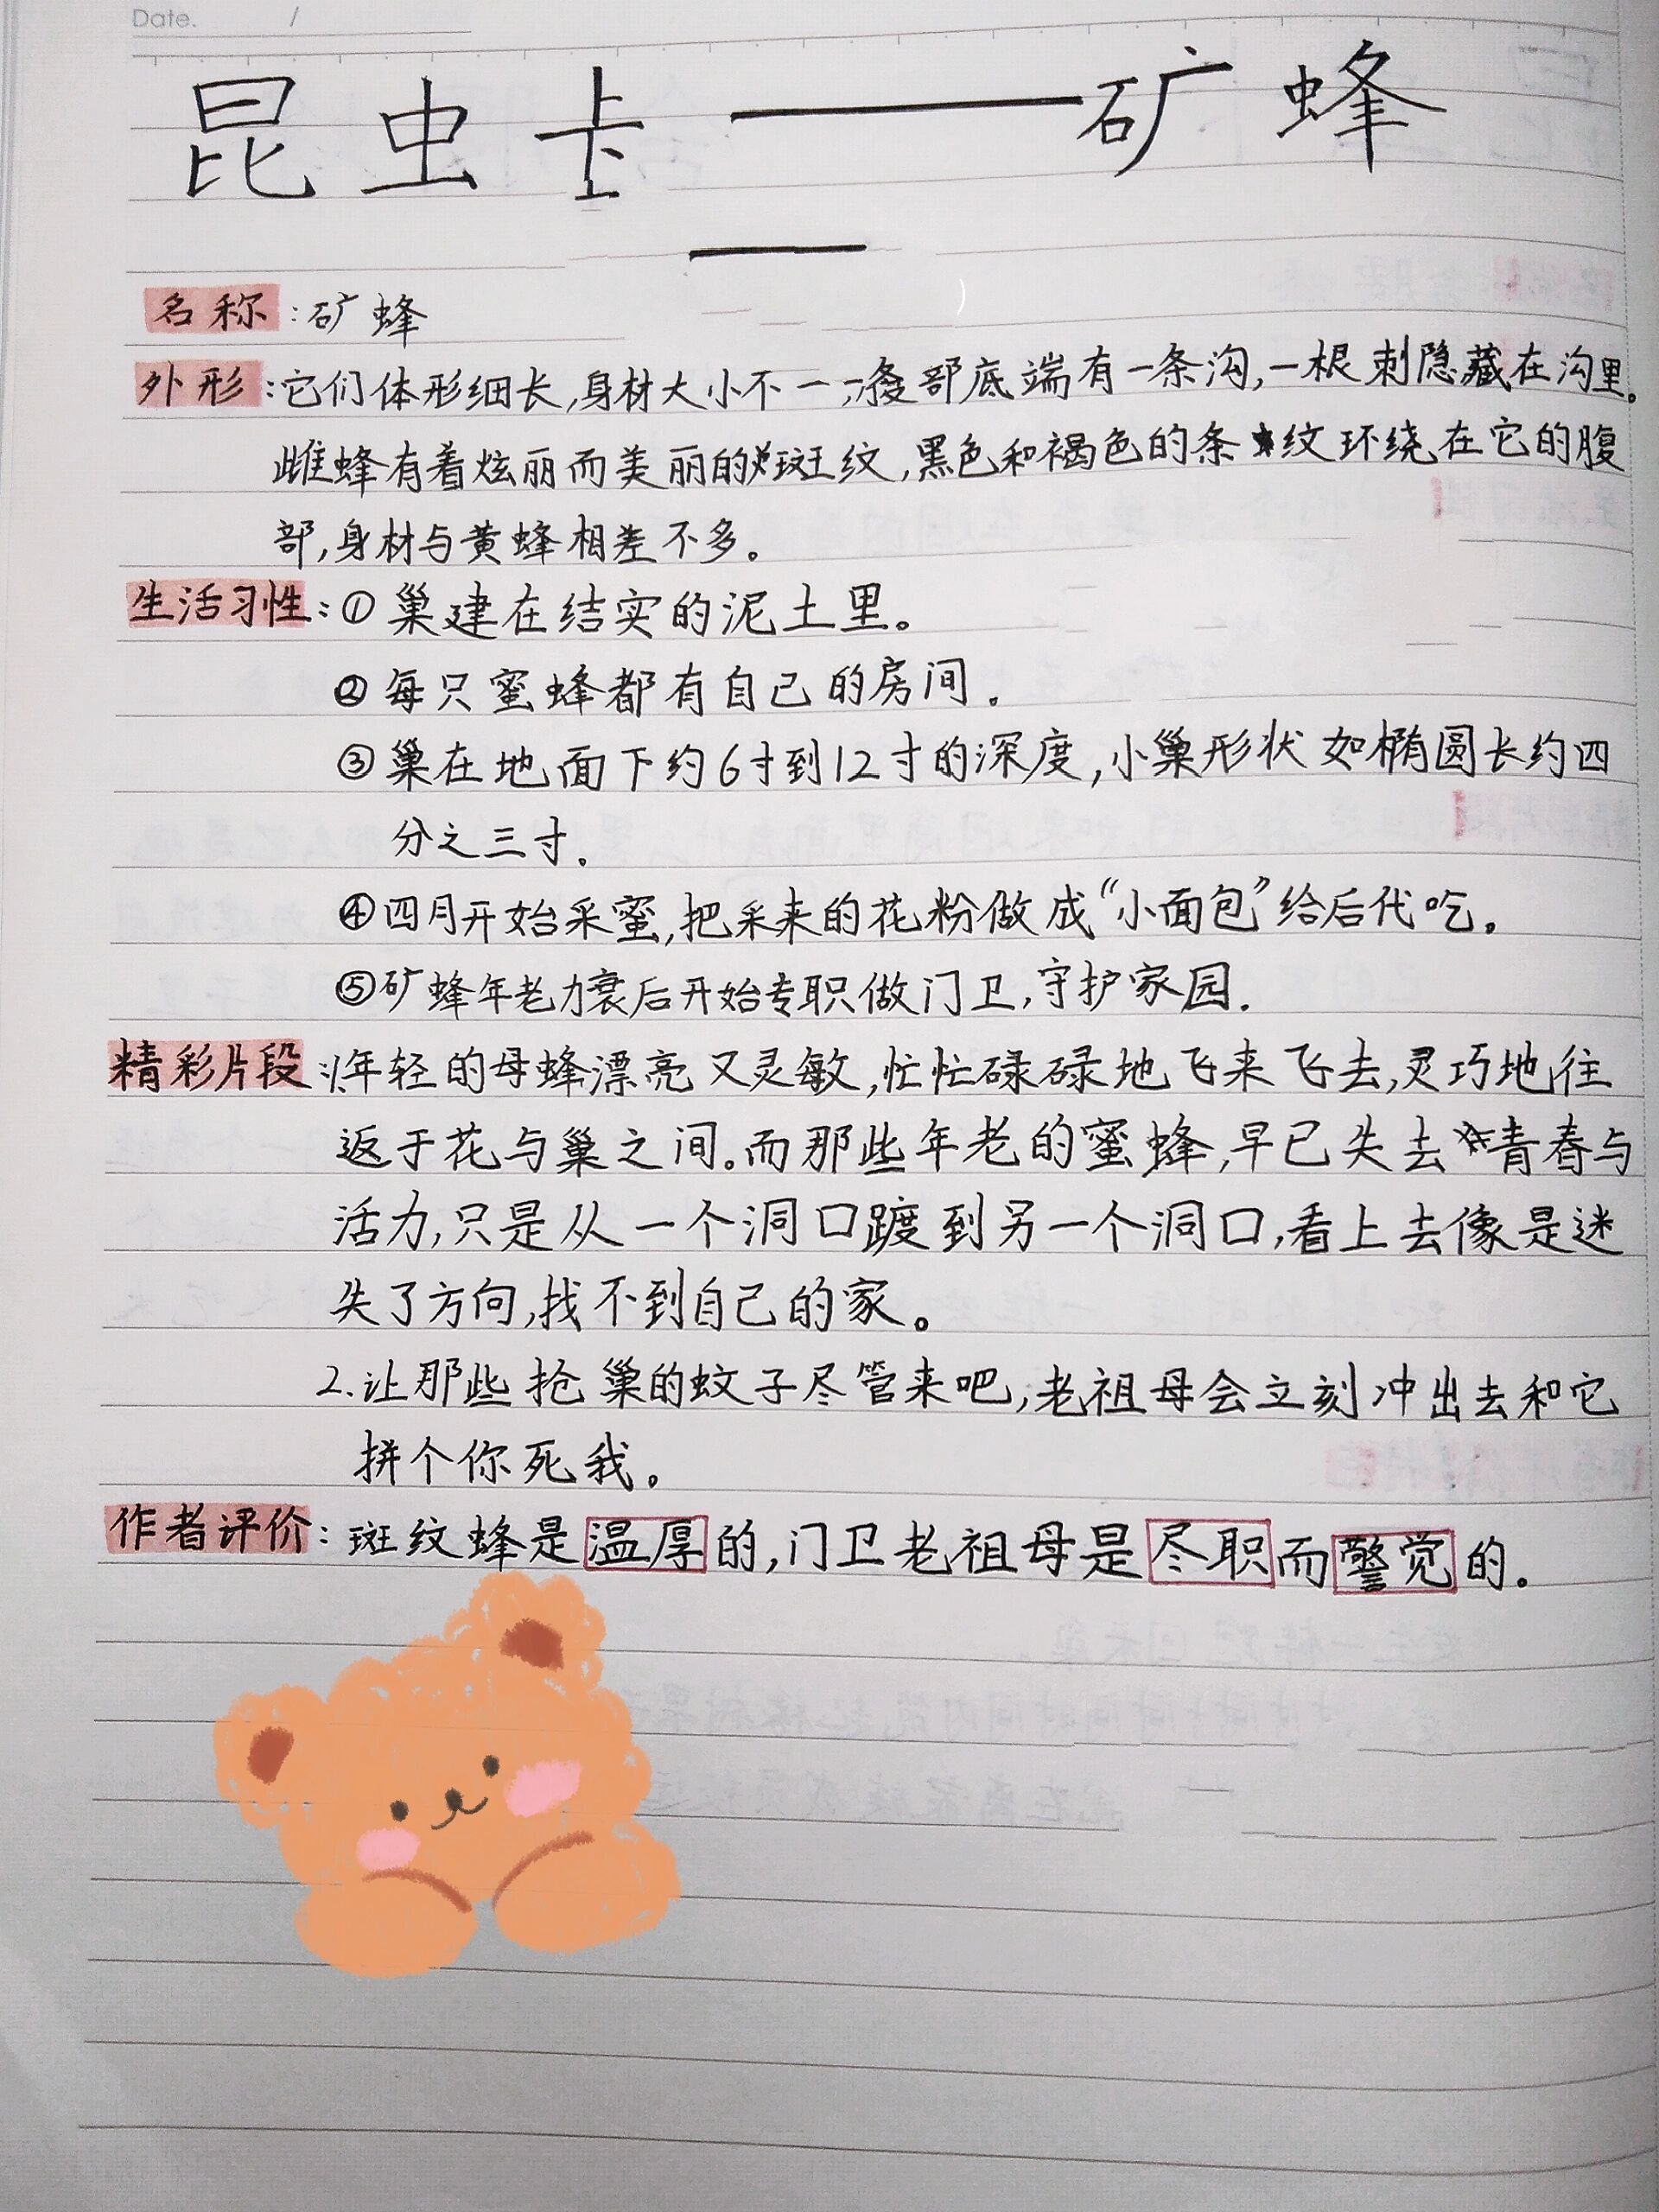 Date.        /
昆虫卡——矿蜂
名称:矿蜂
外形:它们体形细长,身材大小不一,腹部底端有一条沟,一根刺隐藏在沟里。
雌蜂有着炫丽而美丽的斑纹,黑色和褐色的条纹环绕在它的腹
部,身材与黄蜂相差不多。
生活习性:①巢建在结实的泥土里。
②每只蜜蜂都有自己的房间.
③巢在地面下约6寸到12寸的深度,小巢形状如椭圆长约四
分之三寸.
④四月开始采蜜,把采来的花粉做成“小面包”给后代吃.
⑤矿蜂年老力衰后开始专职做门卫,守护家园.
精彩片段:1.年轻的母蜂漂亮又灵敏,忙忙碌碌地飞来飞去,灵巧地往
返于花与巢之间。而那些年老的蜜蜂,早已失去青春与
活力,只是从一个洞口踱到另一个洞口,看上去像是迷
失了方向,找不到自己的家。
2.让那些抢巢的蚊子尽管来吧,老祖母会立刻冲出去和它
拼个你死我。
作者评价:斑纹蜂是温厚的,门卫老祖母是尽职而警觉的.